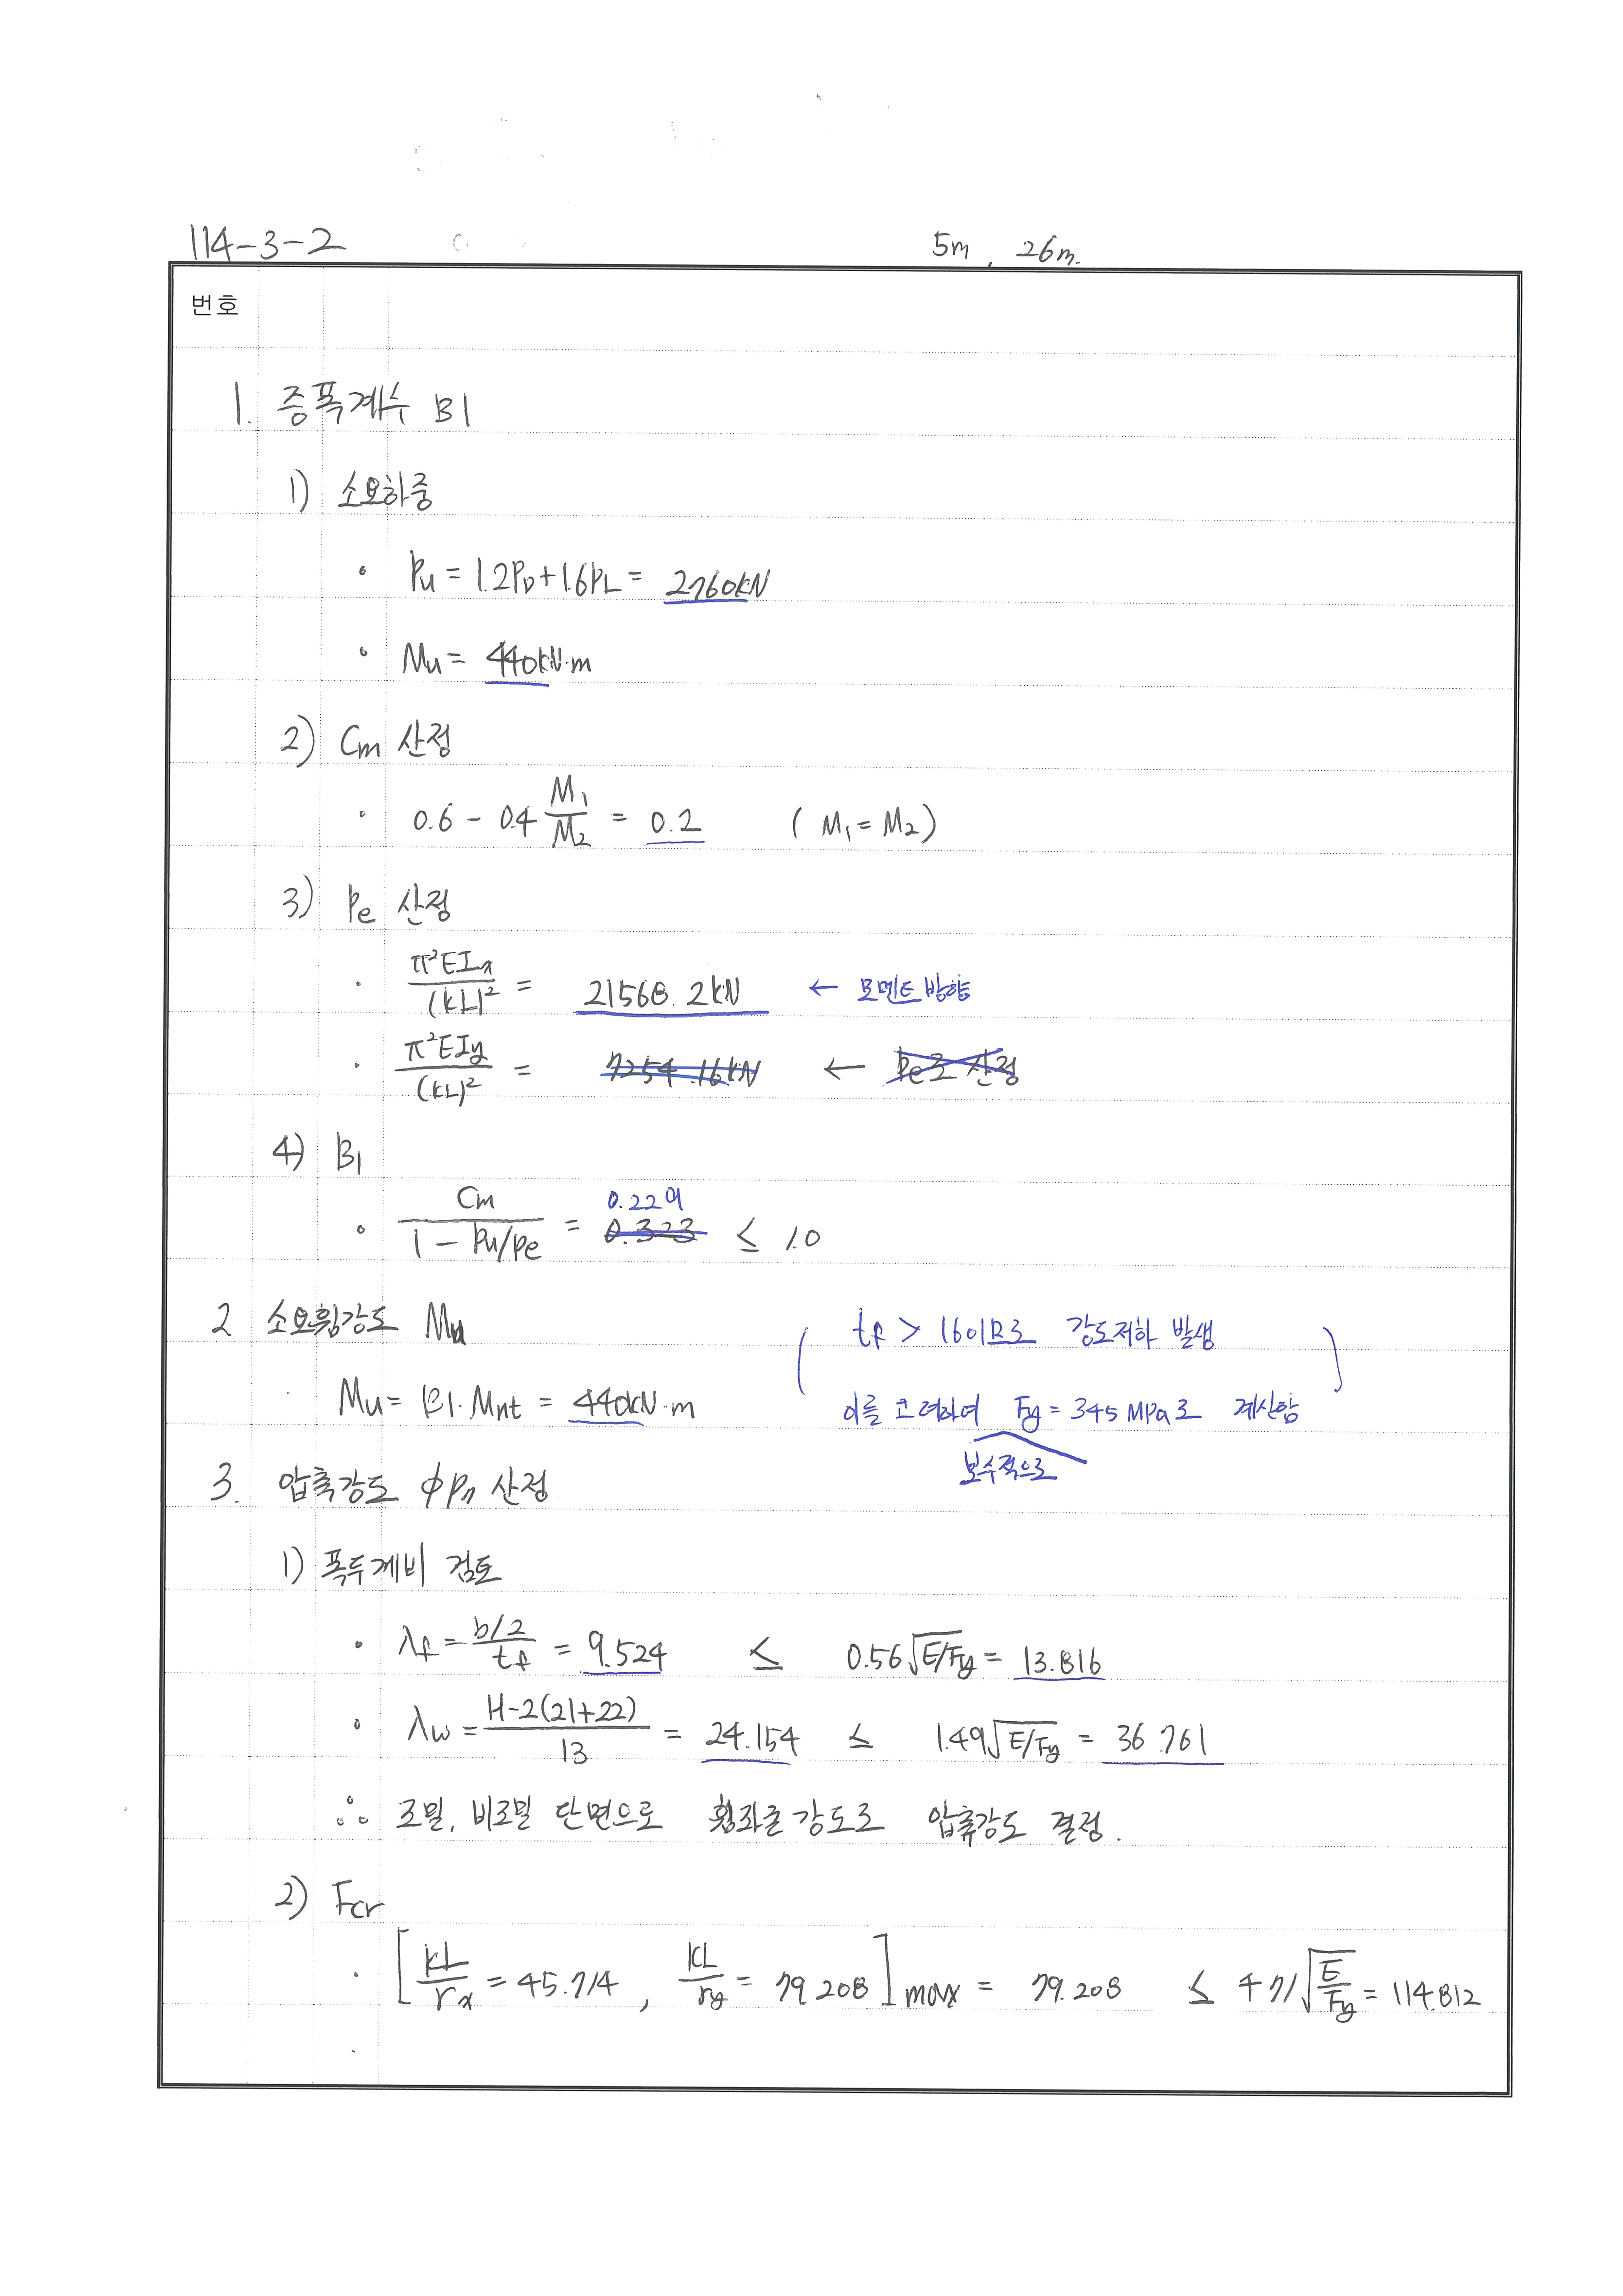 114-3-2
5m, 26m.
번호
1. 증폭계수 B1
1) 소요하중
• Pu = 1.2PD + 1.6PL = 2760kN
• Mu = 440kN·m
2) Cm 산정
• 0.6 - 0.4 M1/M2 = 0.2 ( M1 = M2 )
3) Pe 산정
• π²EIx/(kL)² = 21568.2kN ← 모멘트 방향
• π²EIy/(kL)² = 7254.16kN ← Pe로 산정
4) B1
0.229
• Cm/(1 - Pu/Pe) = 0.323 ≤ 1.0
2 소요휨강도 Mu
( tf > 16이므로 강도저하 발생
· Mu = B1·Mnt = 440kN·m
이를 고려하여 Fy = 345 MPa로 계산함 )
보수적으로
3. 압축강도 φPn 산정
1) 폭두께비 검토
• λf = (b/2)/tf = 9.524 ≤ 0.56√E/Fy = 13.816
• λw = (H-2(21+22))/13 = 24.154 ≤ 1.49√E/Fy = 36.761
∴ 조밀, 비조밀 단면으로 휨좌굴강도로 압축강도 결정.
2) Fcr
• [ kL/rx = 45.714 , kL/ry = 79.208 ]max = 79.208 ≤ 4.71√E/Fy = 114.812